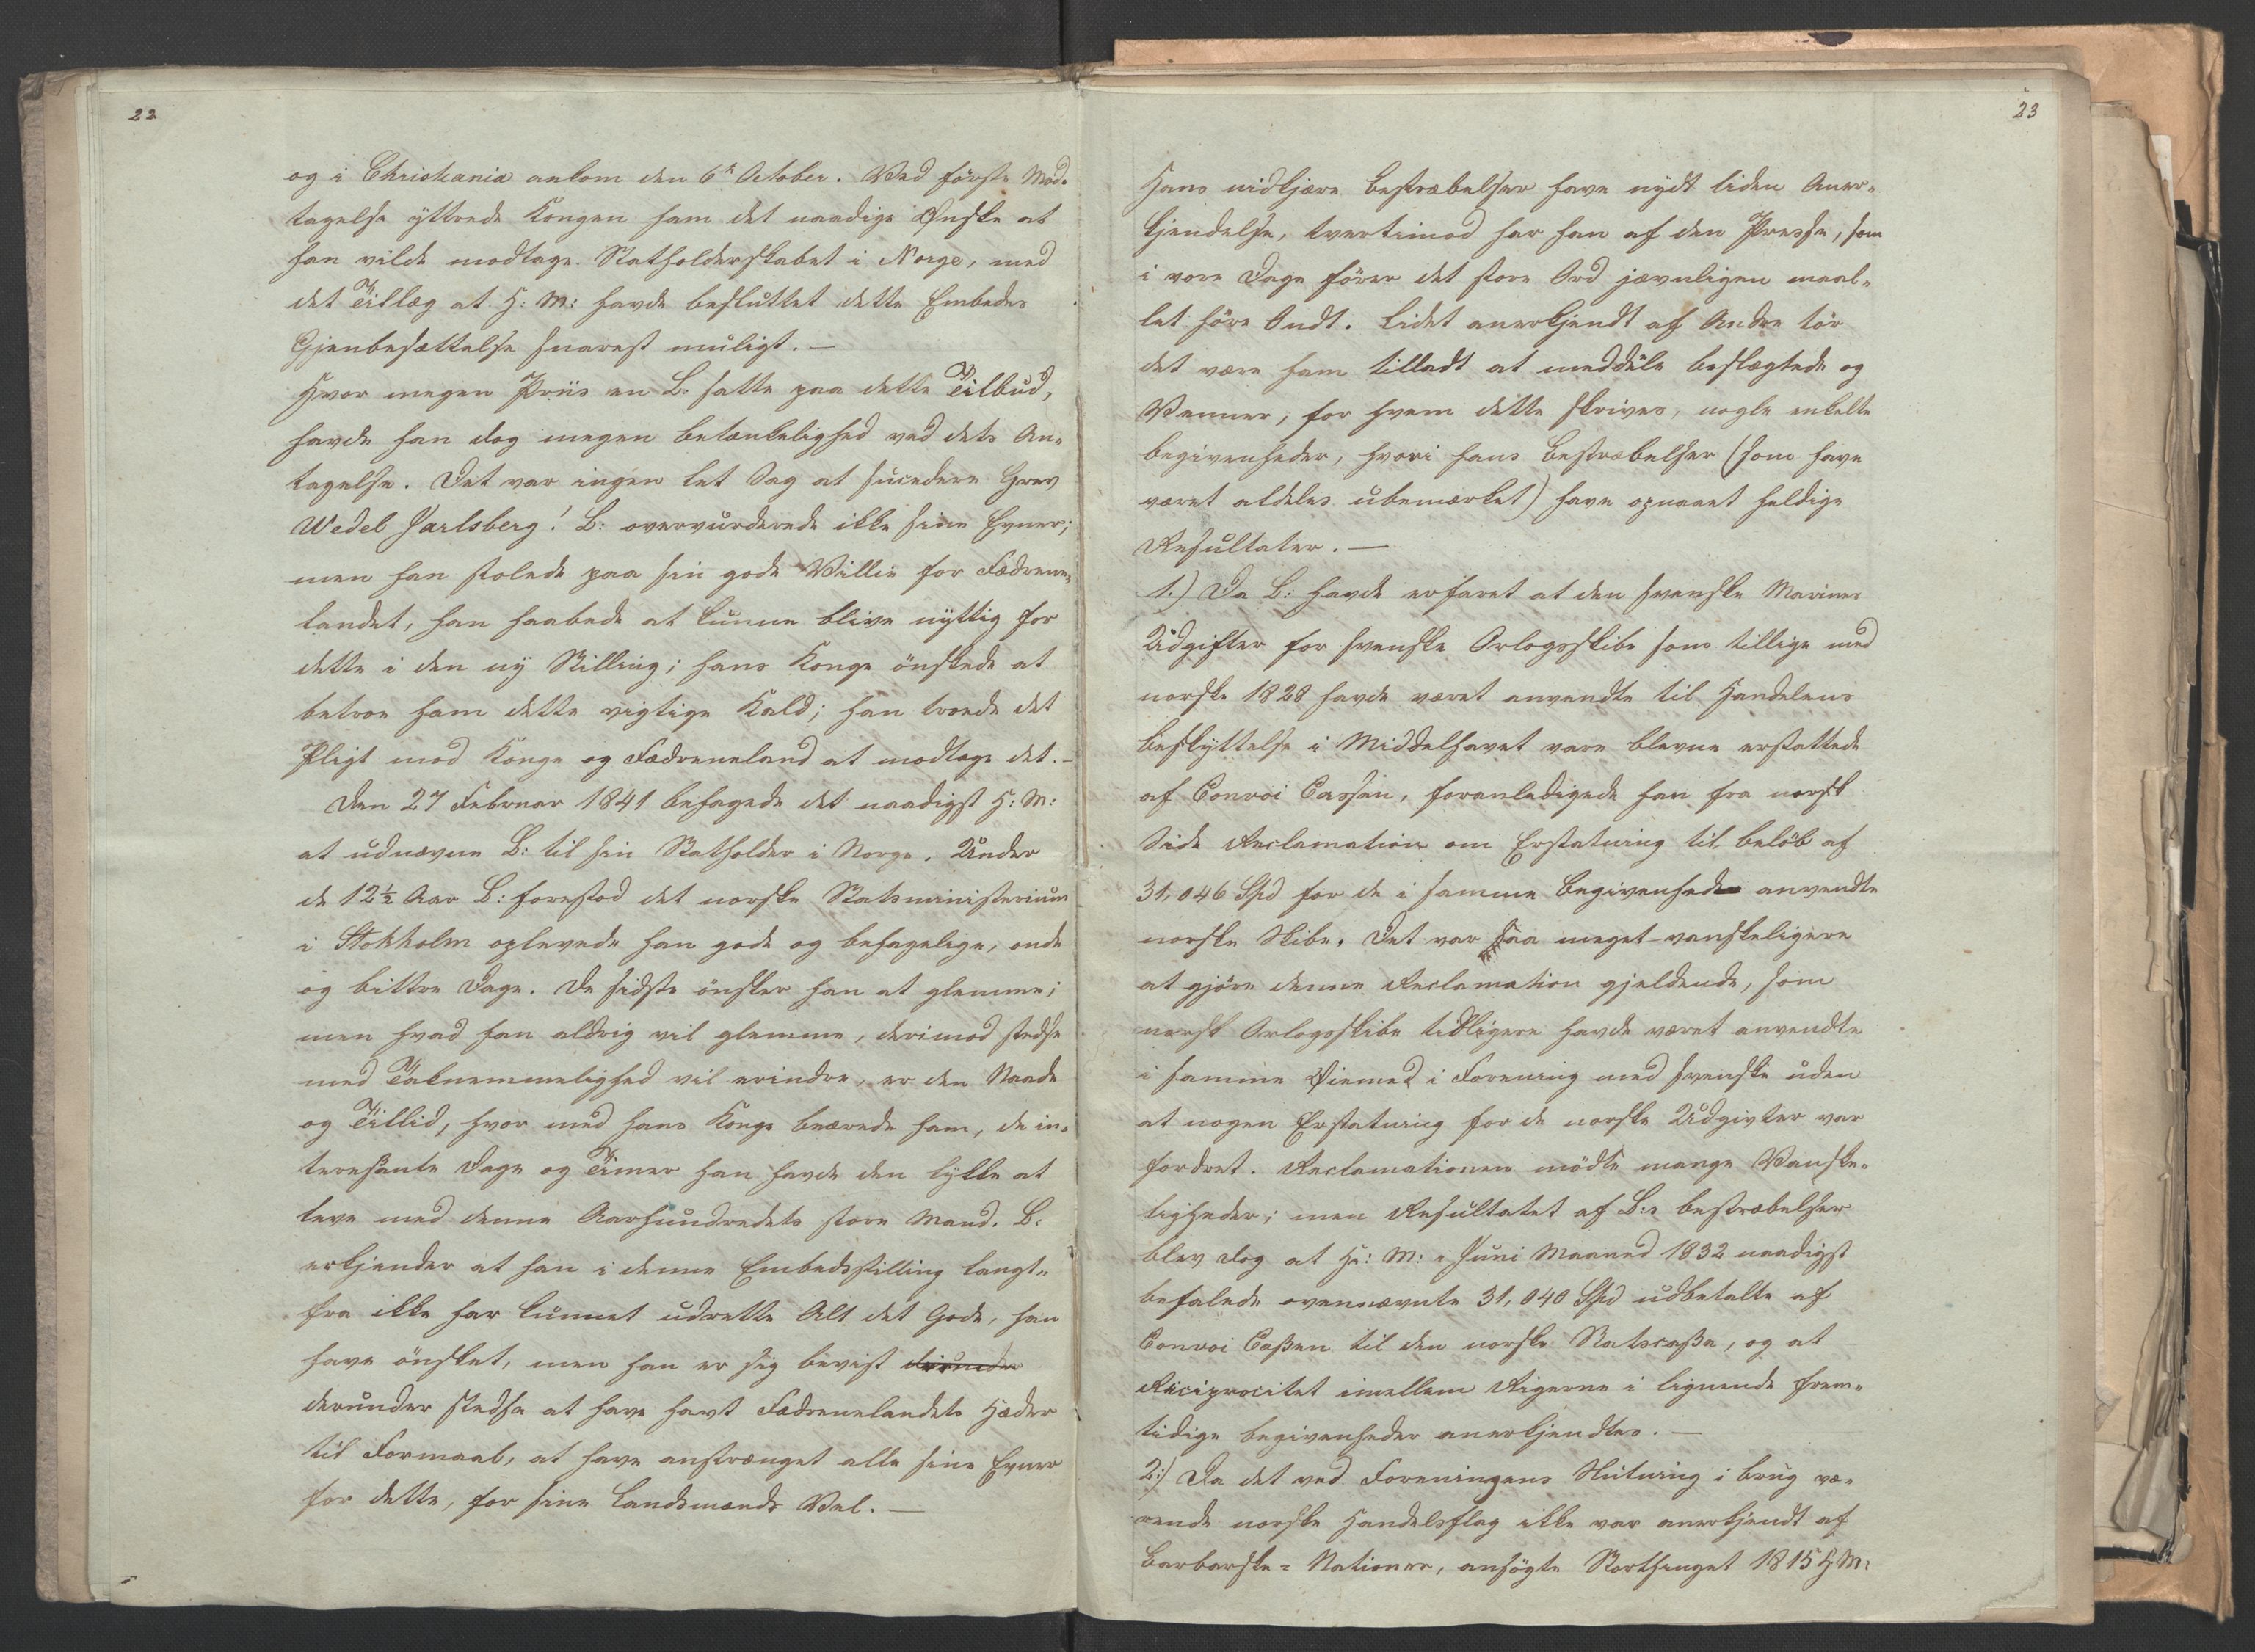 22
og i Christiania ankom den 6te October. Ved förste Mod-
tagelse yttrede Kongen ham det naadige Ønske at
han vilde modtage Statholderskabet i Norge, med
det Tillæg at H: M: havde besluttet dette Embedes
Gjenbesættelse snarest muligt. —
Hvor megen Priis en L: satte paa dette Tilbud,
havde han dog megen betænkelighed ved dets An-
tagelse. Det var ingen let Sag at succedere Grev
Wedel Jarlsberg! L: overvurderede ikke sine Evner;
men han stolede paa sin gode Villie for Fædrene-
landet, han haabede at kunne blive nyttig for
dette i den ny Stilling; hans Konge önskede at
betroe ham dette vigtige Kald; han troede det
Pligt mod Konge og Fædreneland at modtage det. —
Den 27 Februar 1841 behagede det naadigst H: M:
at udnævne L: til sin Statholder i Norge. Under
de 12½ Aar L: forestod det norske Statsministerium
i Stokholm oplevede han gode og behagelige, onde
og bittre Dage. De sidste önsker han at glemme;
men hvad han aldrig vil glemme, derimod stedse
med Taknemmelighed vil erindre, er den Naade
og Tillid, hvor med hans Konge beærede ham, de in-
teressante Dage og Timer han havde den lykke at
leve med denne Aarhundredets store Mand. L:
erkjender at han i denne Embedsstilling langt-
fra ikke har kunnet udrette Alt det Gode, han
have önsket, men han er sig bevist derunder
derunder stedse at have havt Fædrenelandets Hæder
til Formaal, at have anstrænget alle sine Evner
for dette, for sine Landsmænds Vel. —
23
Hans nidkjære bestræbelser have nydt liden Aner-
kjendelse, tvertimod har han af den Presse, som
i vore Dage förer det store Ord jævnligen maat-
let höre Ondt. Lidet anerkjendt af Andre tör
det være ham tilladt at meddele beslægtede og
Venner, for hvem dette skrives, nogle enkelte
begivenheder, hvori hans bestræbelser (som have
været aldeles ubemærket) have opnaaet heldige
Resultater. —
1.) Da L: havde erfaret at den svenske Marines
Udgifter for svenske Orlogsskibe som tillige med
norske 1828 havde været anvendte til Handelens
beskyttelse i Middelhavet vare blevne erstattede
af Convoi Cassen, foranledigede han fra norsk
Side Reclamation om Erstatning til beløb af
31,046 Spd for de i samme begivenhed anvendte
norske Skibe. Det var saa meget vanskeligere
at gjöre denne Reclamation gjeldende, som
norsk Orlogsskibe tidligere havde været anvendte
i samme Øiemed i Forening med svenske uden
at nogen Erstatning for de norske Udgivter var
fordret. Reclamationen mödte mange Vanske-
ligheder; men Resultatet af L:s bestræbelser
blev dog at H: M: i Juni Maaned 1832 naadigst
befalede ovennævnte 31,040 Spd udbetalte af
Convoi Caßen til den norske Statscaßa, og at
Reciprocitet imellem Rigerne i lignende frem-
tidige begivenheder anerkjendtes. —
2:) Da det ved Foreningens Slutning i brug væ-
rende norske Handelsflag ikke var anerkjendt af
Barbarske-Nationer, ansögte Storthinget 1815 H M: